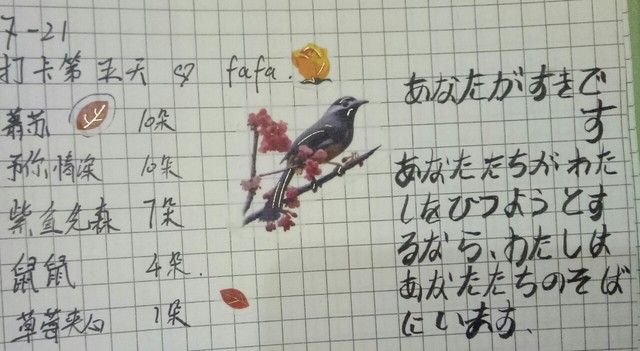 7-21
打卡第五天 ♡ fafa.
慕苏 10朵
予你情深 10朵
紫宣先森 7朵
鼠鼠 4朵.
草莓夹心 1朵
あなたがすきで
す
あなたたちがわた
しをひつようとす
るなら、わたしは
あなたたちのそば
にいます.